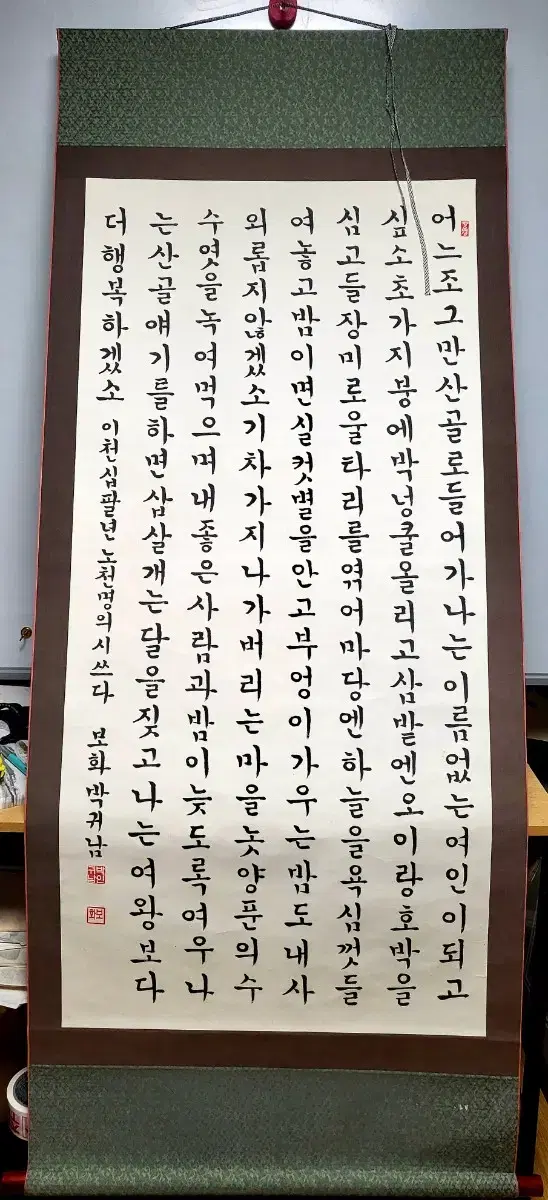 어느조그만산골로들어가나는이름없는여인이되고
싶소초가지붕에박넝쿨올리고삼밭엔오이랑호박을
심고들장미로울타리를엮어마당엔하늘을욕심껏들
여놓고밤이면실컷별을안고부엉이가우는밤도내사
외롭지않겠소기차가지나가버리는마을놋양푼의수
수엿을녹여먹으며내좋은사람과밤이늦도록여우나
는산골얘기를하면삽살개는달을짖고나는여왕보다
더행복하겠소 이천십팔년 노천명의시쓰다 보화 박귀남
보화